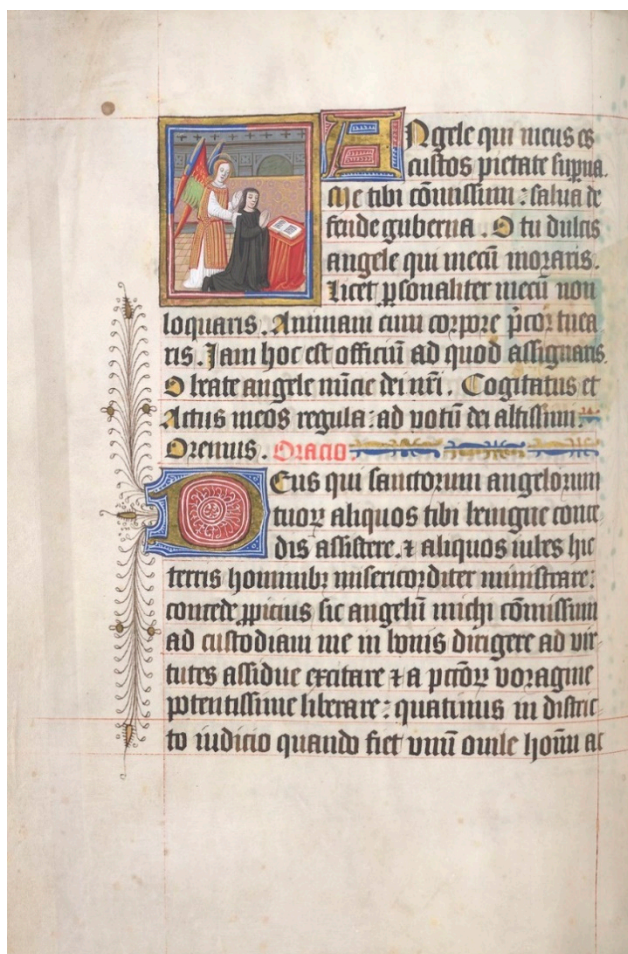 Angele qui meus es
custos pietate sup̲na.
Me tibi cōmissum : salua de
fende guberna . O tu dulcis
angele qui mecū moraris.
Licet p̲sonaliter mecū non
loquaris. Animam cum corpore p̄cor tuea
ris. Jam hoc est officiū ad quod assignaris.
O beate angele nūcie dei nr̄i. Cogitatus et
Actus meos regula: ad votū dei altissimi.
Oremus. Oracio.
Deus qui sanctorum angelorum
tuoꝝ aliquos tibi benigne conce
dis assistere. ⁊ aliquos iubes hic
terris hominibꝫ misericorditer ministrare:
concede p̲picius sic angelū michi cōmissum
ad custodiam me in bonis dirigere ad vir
tutes assidue excitare ⁊ a pc̄tōꝝ voragine
potentissime liberare: quatinus in distric
to iudicio quando fiet vnū ouile hoīm ac